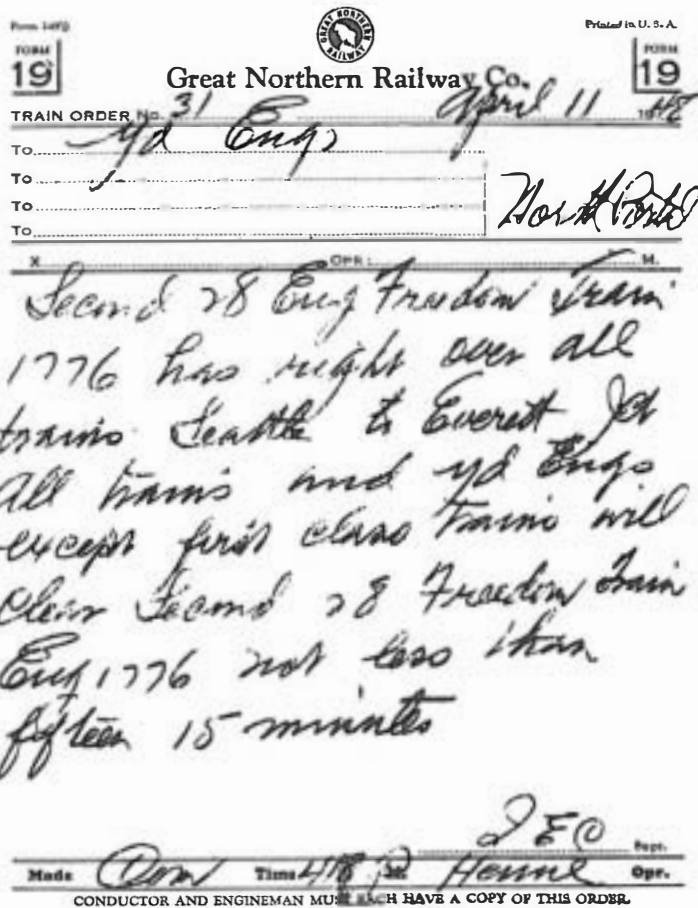 Form 1492
Printed in U. S. A.
FORM
19
GREAT NORTHERN
RAILWAY
FORM
19
Great Northern Railway Co.
TRAIN ORDER No. 31 April 11 1948
To yd Engs
To
To North Portal
To
X OPR: M.
Second 28 Eng Freedom Train
1776 has right over all
trains Seattle to Everett Jct
All trains and yd Engs
except first class trains will
clear Second 28 Freedom Train
Eng 1776 not less than
fifteen 15 minutes
Supt.
Made Com Time 418 P M. Opr.
CONDUCTOR AND ENGINEMAN MUST EACH HAVE A COPY OF THIS ORDER.